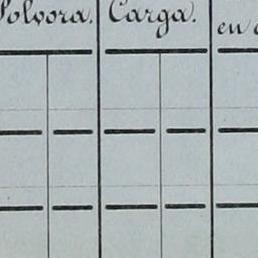 Polvora. Carga. en